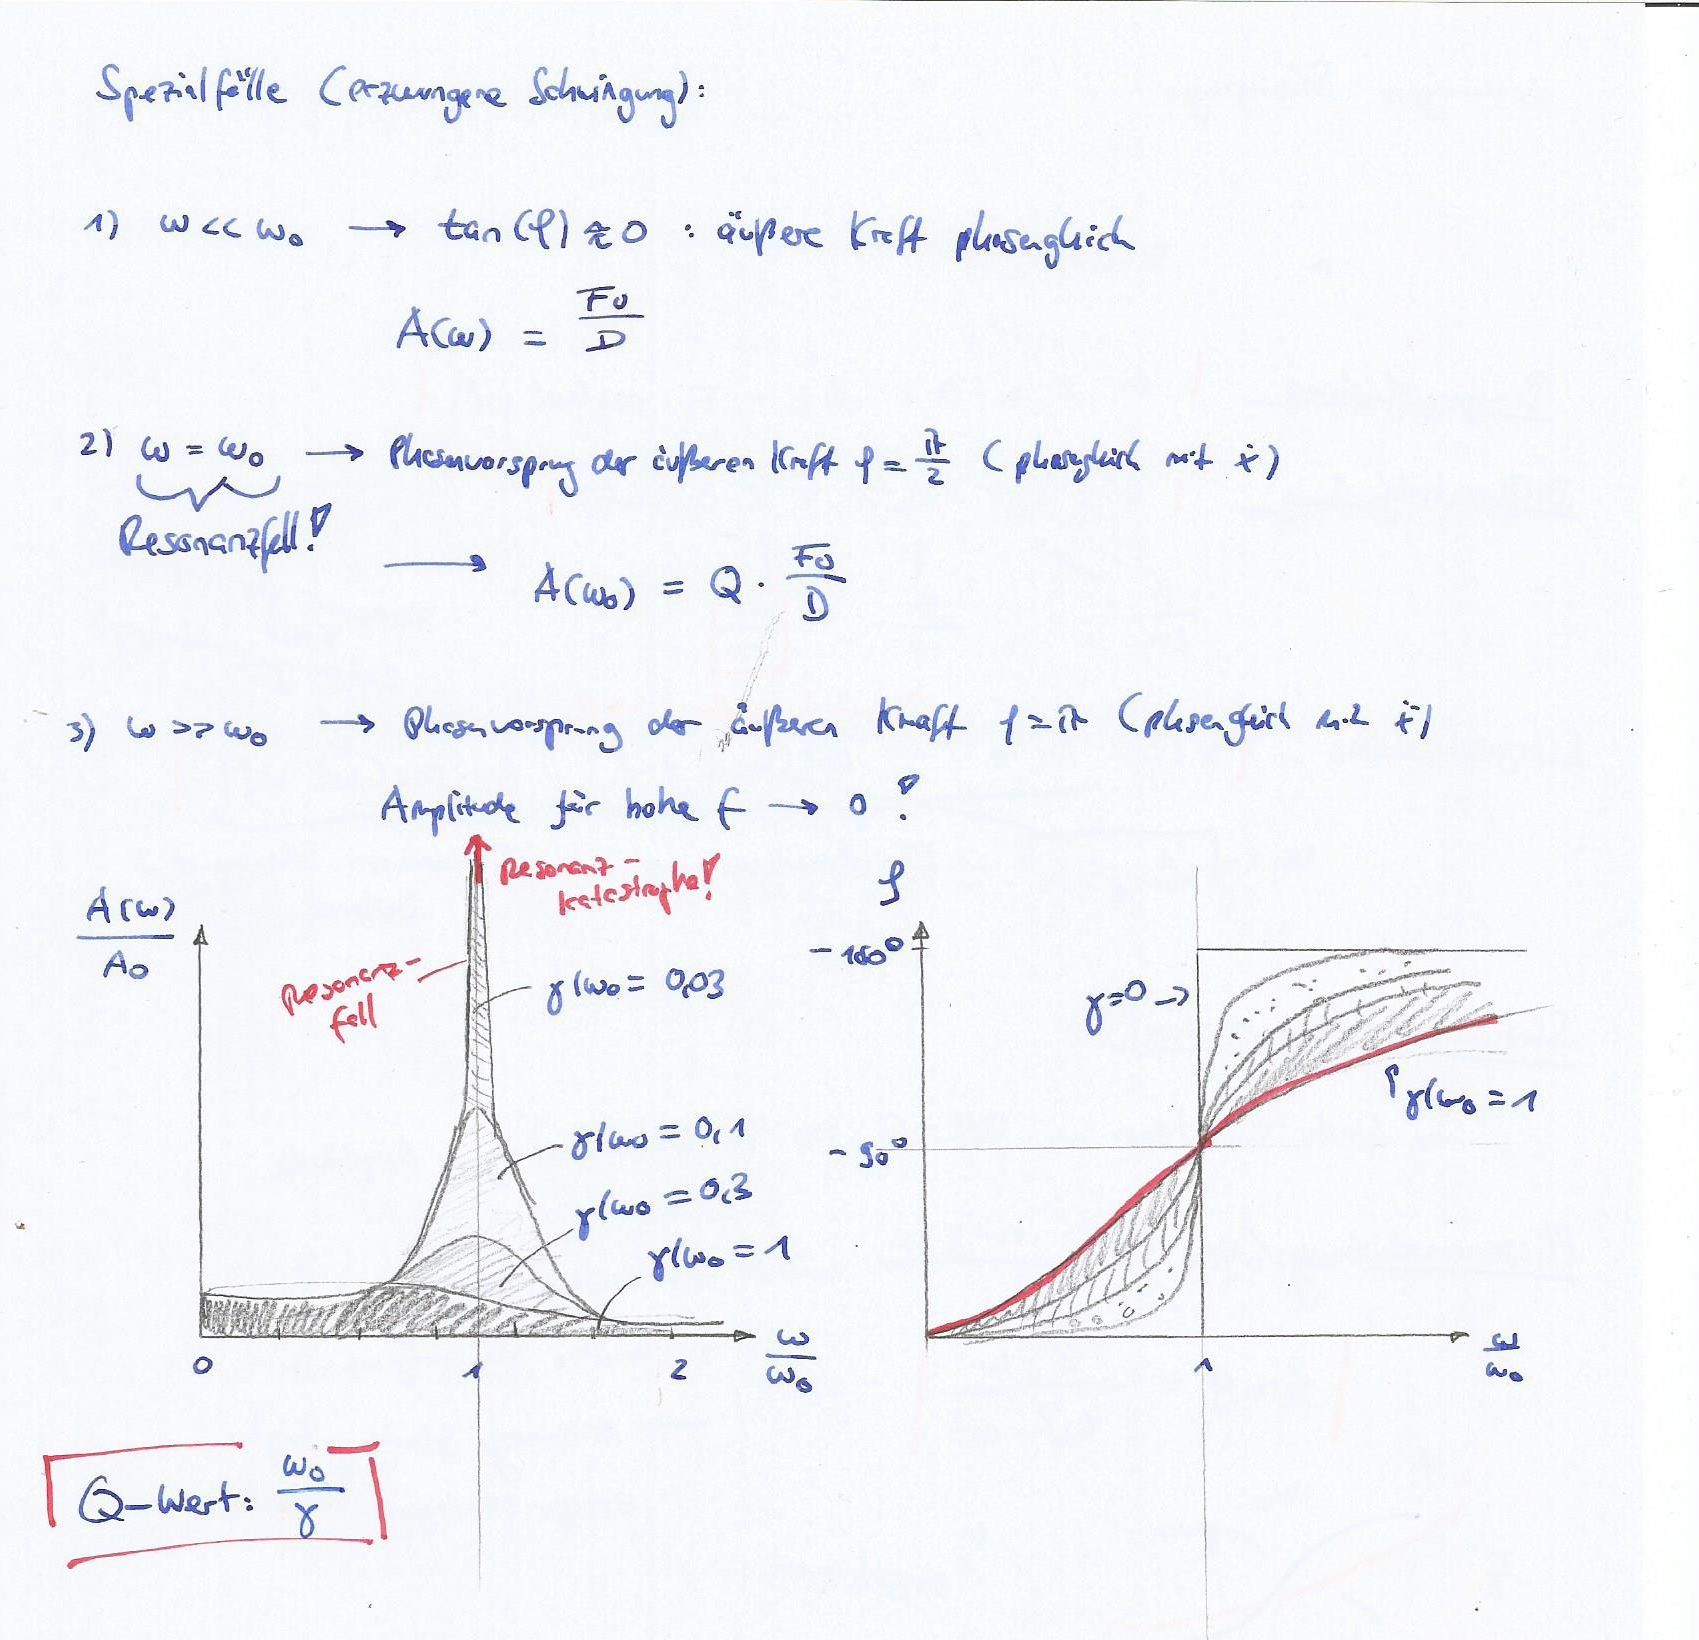 Spezialfälle (erzwungene Schwingung):
1) ω << ω₀ → tan(φ) ≈ 0 : äußere Kraft phasengleich
A(ω) = F₀/D
2) ω = ω₀ → Phasenvorsprung der äußeren Kraft φ = π/2 (phasengleich mit ẋ)
Resonanzfall!
→ A(ω₀) = Q · F₀/D
3) ω >> ω₀ → Phasenvorsprung der äußeren Kraft φ = π (phasengleich mit ẍ)
Amplitude für hohe f → 0 !
Resonanz-
katastrophe!
A(ω)/A₀
Resonanz-
fall
γ/ω₀ = 0,03
γ/ω₀ = 0,1
γ/ω₀ = 0,3
γ/ω₀ = 1
0 1 2 ω/ω₀
φ
-180°
γ=0 →
γ/ω₀ = 1
-90°
1 ω/ω₀
Q-Wert: ω₀/γ